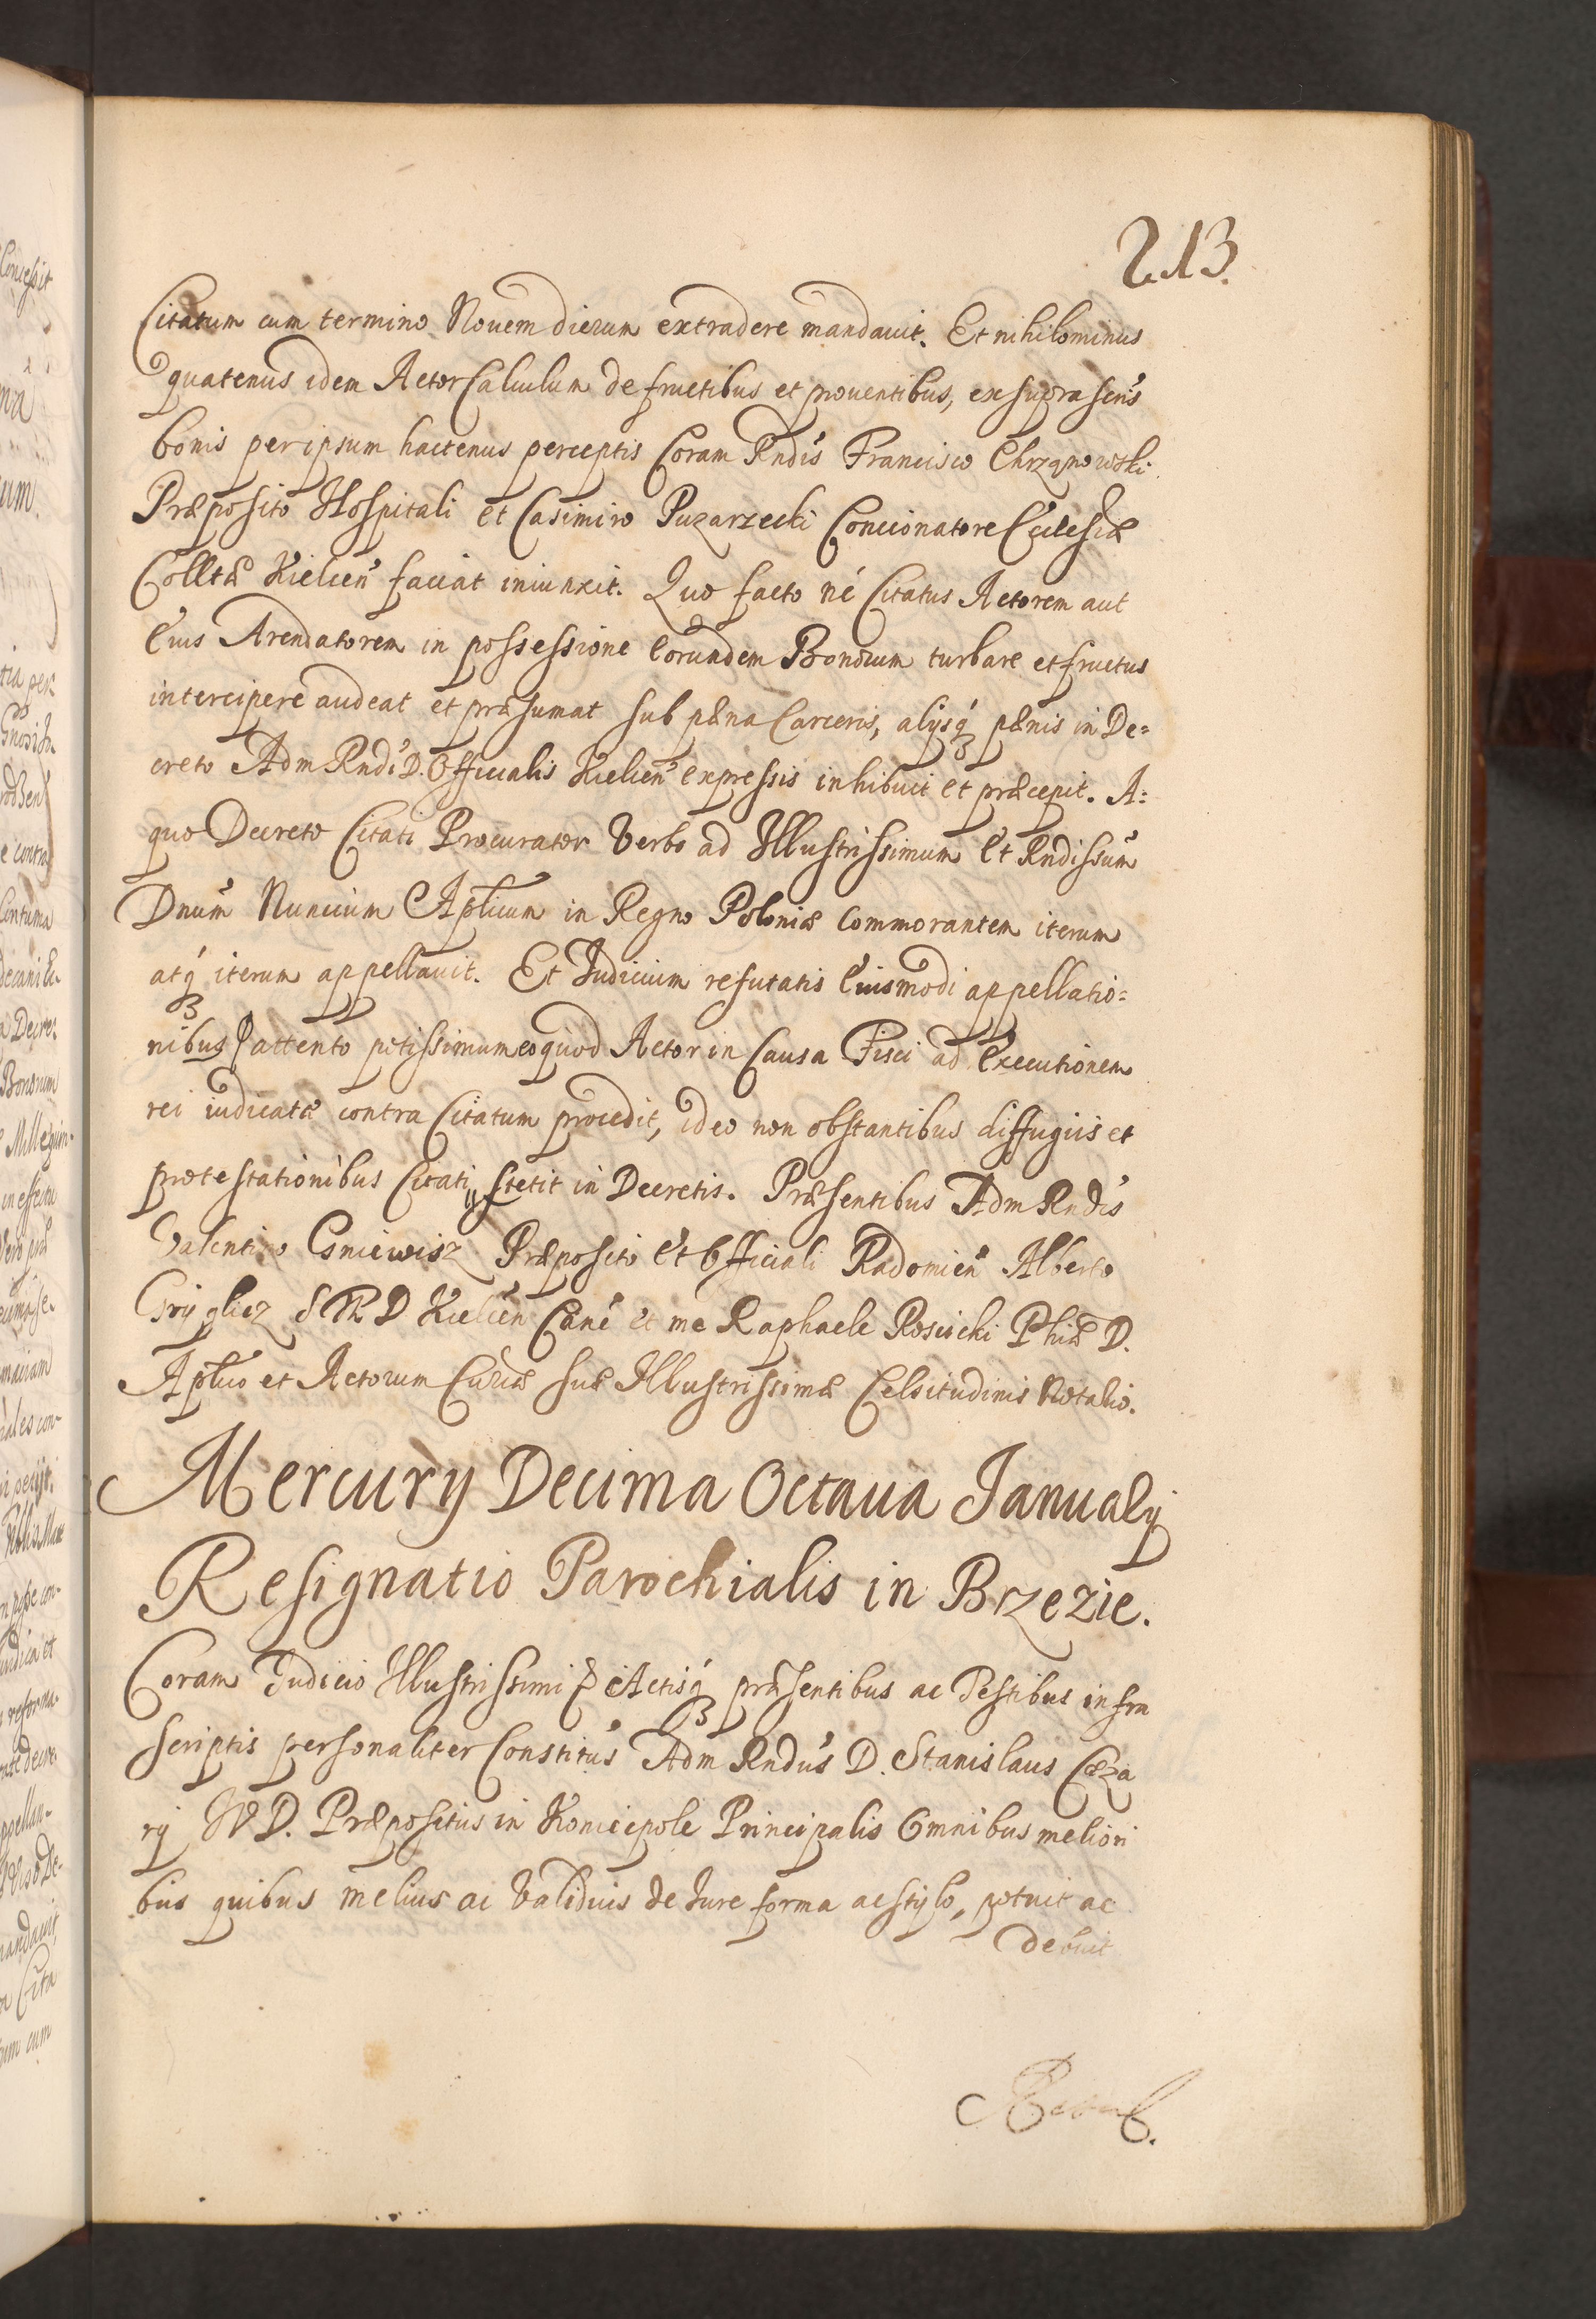 213.
Citatum cum termino Nouem dierum extradere mandauit. Et nihilominus
quatenus idem Actor Calculum de fructibus et prouentibus, ex supra scris
bonis per ipsum hactenus perceptis Coram Rndis Francisco Chrząnowski
Præposito Hospitali et Casimiro Puzarzecki Concionatore Ecclesiæ
Colltæ Kielcen faciat iniunxit. Quo facto né Citatus Actorem aut
Eius Arendatorem in possessione Eorundem Bonorum turbare et fructus
intercipere audeat et præsumat sub pæna Carceris, alysq pænis in De=
creto Adm Rndi D. Officialis Kielcen expressis inhibuit et præcepit. A=
quo Decreto Citati Procurator Verbo ad Illustrissimum Et Rndissum
Dnum Nuncium Aplicum in Regno Poloniæ Commorantem iterum
atq iterum appellauit. Et Iudicium refutatis Eiusmodi appellatio=
nibus attento potissimum eo quod Actor in Causa Fisci ad Executionem
rei iudicatæ contra Citatum procedit, ideo non obstantibus diffugiis et
protestationibus Citati stetit in Decretis. Præsentibus Adm Rndis
Valentino Gsniewisz Præposito Et Officiali Radomien Alberto
Grygliez S Th D Kielcen Cane et me Raphaele Roscicki Phiæ D.
Aplico et Actorum Curiæ suæ Illustrissimæ Celsitudinis Notario.
Mercury Decima Octaua Ianuary
Resignatio Parochialis in Brzezie.
Coram Iudicio Illustrissimi & Actisq præsentibus ac Testibus infra
scriptis personaliter Constitus Adm Rndus D. Stanislaus Cæza
ry IVD. Præpositus in Koniecpole Principalis Omnibus meliori
bus quibus melius ac Validius de Iure forma ac stylo, potuit ac
debuit